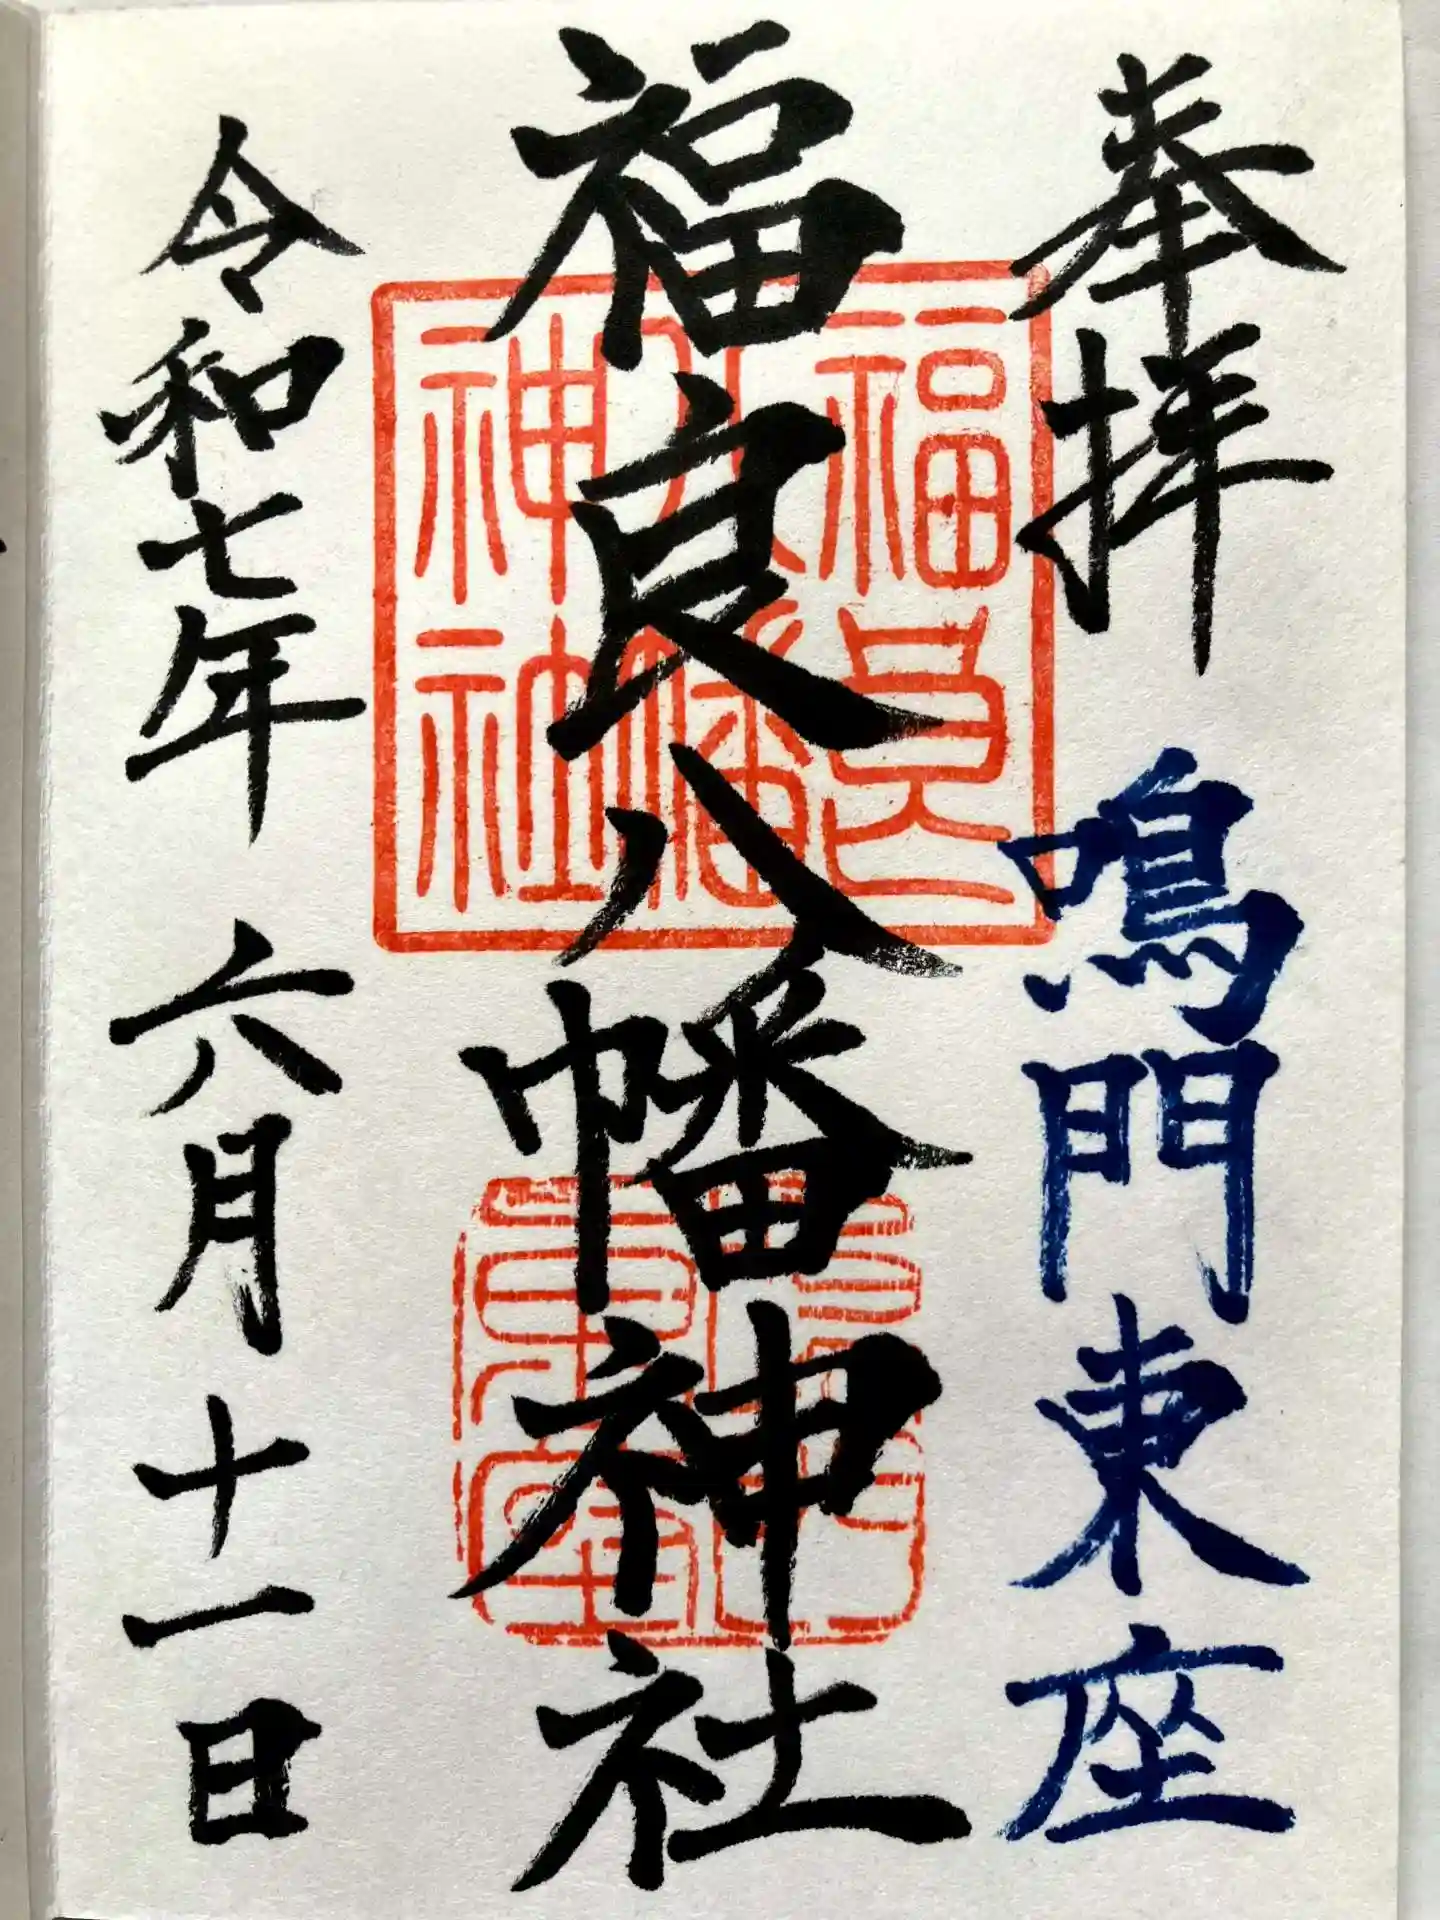 奉拝
鳴門東座
福良八幡神社
令和七年六月十一日
福良
八幡
神社